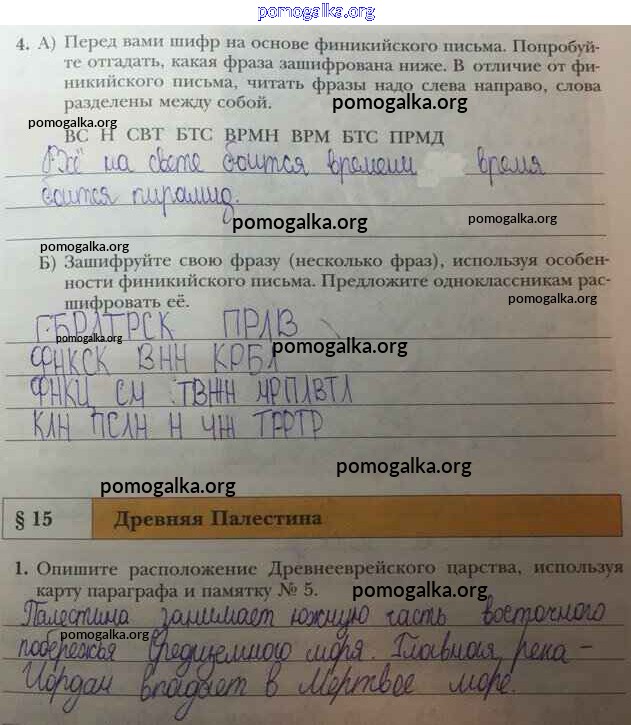 pomogalka.org
4. А) Перед вами шифр на основе финикийского письма. Попробуй-
те отгадать, какая фраза зашифрована ниже. В отличие от фи-
никийского письма, читать фразы надо слева направо, слова
разделены между собой.
pomogalka.org
pomogalka.org
ВС Н СВТ БТС ВРМН ВРМ БТС ПРМД
Всё на свете боится времени время
боится пирамид.
pomogalka.org
pomogalka.org
pomogalka.org
Б) Зашифруйте свою фразу (несколько фраз), используя особен-
ности финикийского письма. Предложите одноклассникам рас-
шифровать её.
pomogalka.org
ГБРЛТРСК ПРЛВ
pomogalka.org
ФНКСК ВНН КРБЛ
pomogalka.org
ФНКЦ СМ ТВЖН ЧРПЛВТЛ
КЛН ПСЛН Н ЧЖ ТРРТР
pomogalka.org
pomogalka.org
§ 15 Древняя Палестина
1. Опишите расположение Древнееврейского царства, используя
карту параграфа и памятку № 5.
pomogalka.org
Палестина занимает южную часть восточного
pomogalka.org
побережья Средиземного моря. Главная река –
Иордан впадает в Мёртвое море.